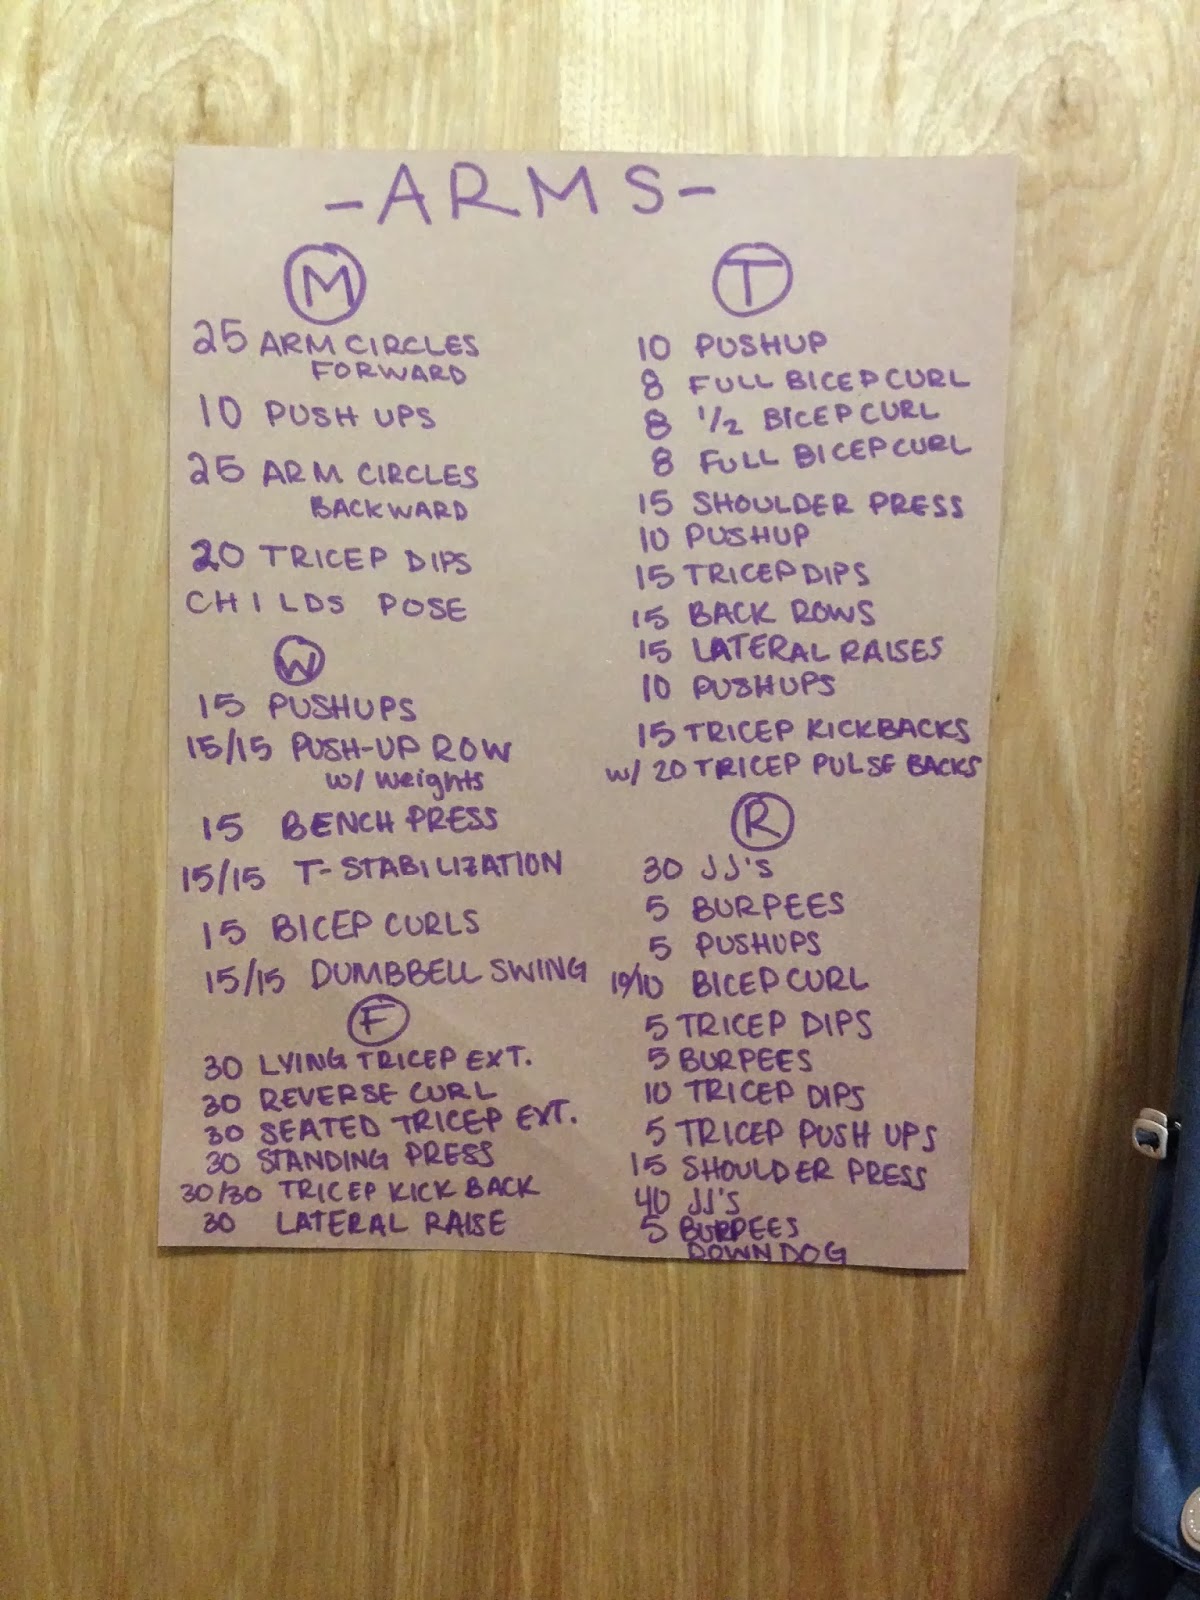 -ARMS-
M
25 ARM CIRCLES
FORWARD
10 PUSH UPS
25 ARM CIRCLES
BACKWARD
20 TRICEP DIPS
CHILDS POSE
W
15 PUSHUPS
15/15 PUSH-UP ROW
w/ weights
15 BENCH PRESS
15/15 T-STABILIZATION
15 BICEP CURLS
15/15 DUMBBELL SWING
F
30 LYING TRICEP EXT.
30 REVERSE CURL
30 SEATED TRICEP EXT.
30 STANDING PRESS
30/30 TRICEP KICK BACK
30 LATERAL RAISE
T
10 PUSHUP
8 FULL BICEP CURL
8 1/2 BICEP CURL
8 FULL BICEP CURL
15 SHOULDER PRESS
10 PUSHUP
15 TRICEP DIPS
15 BACK ROWS
15 LATERAL RAISES
10 PUSHUPS
15 TRICEP KICKBACKS
w/ 20 TRICEP PULSE BACKS
R
30 JJ'S
5 BURPEES
5 PUSHUPS
10/10 BICEP CURL
5 TRICEP DIPS
5 BURPEES
10 TRICEP DIPS
5 TRICEP PUSH UPS
15 SHOULDER PRESS
40 JJ'S
5 BURPEES
DOWN DOG